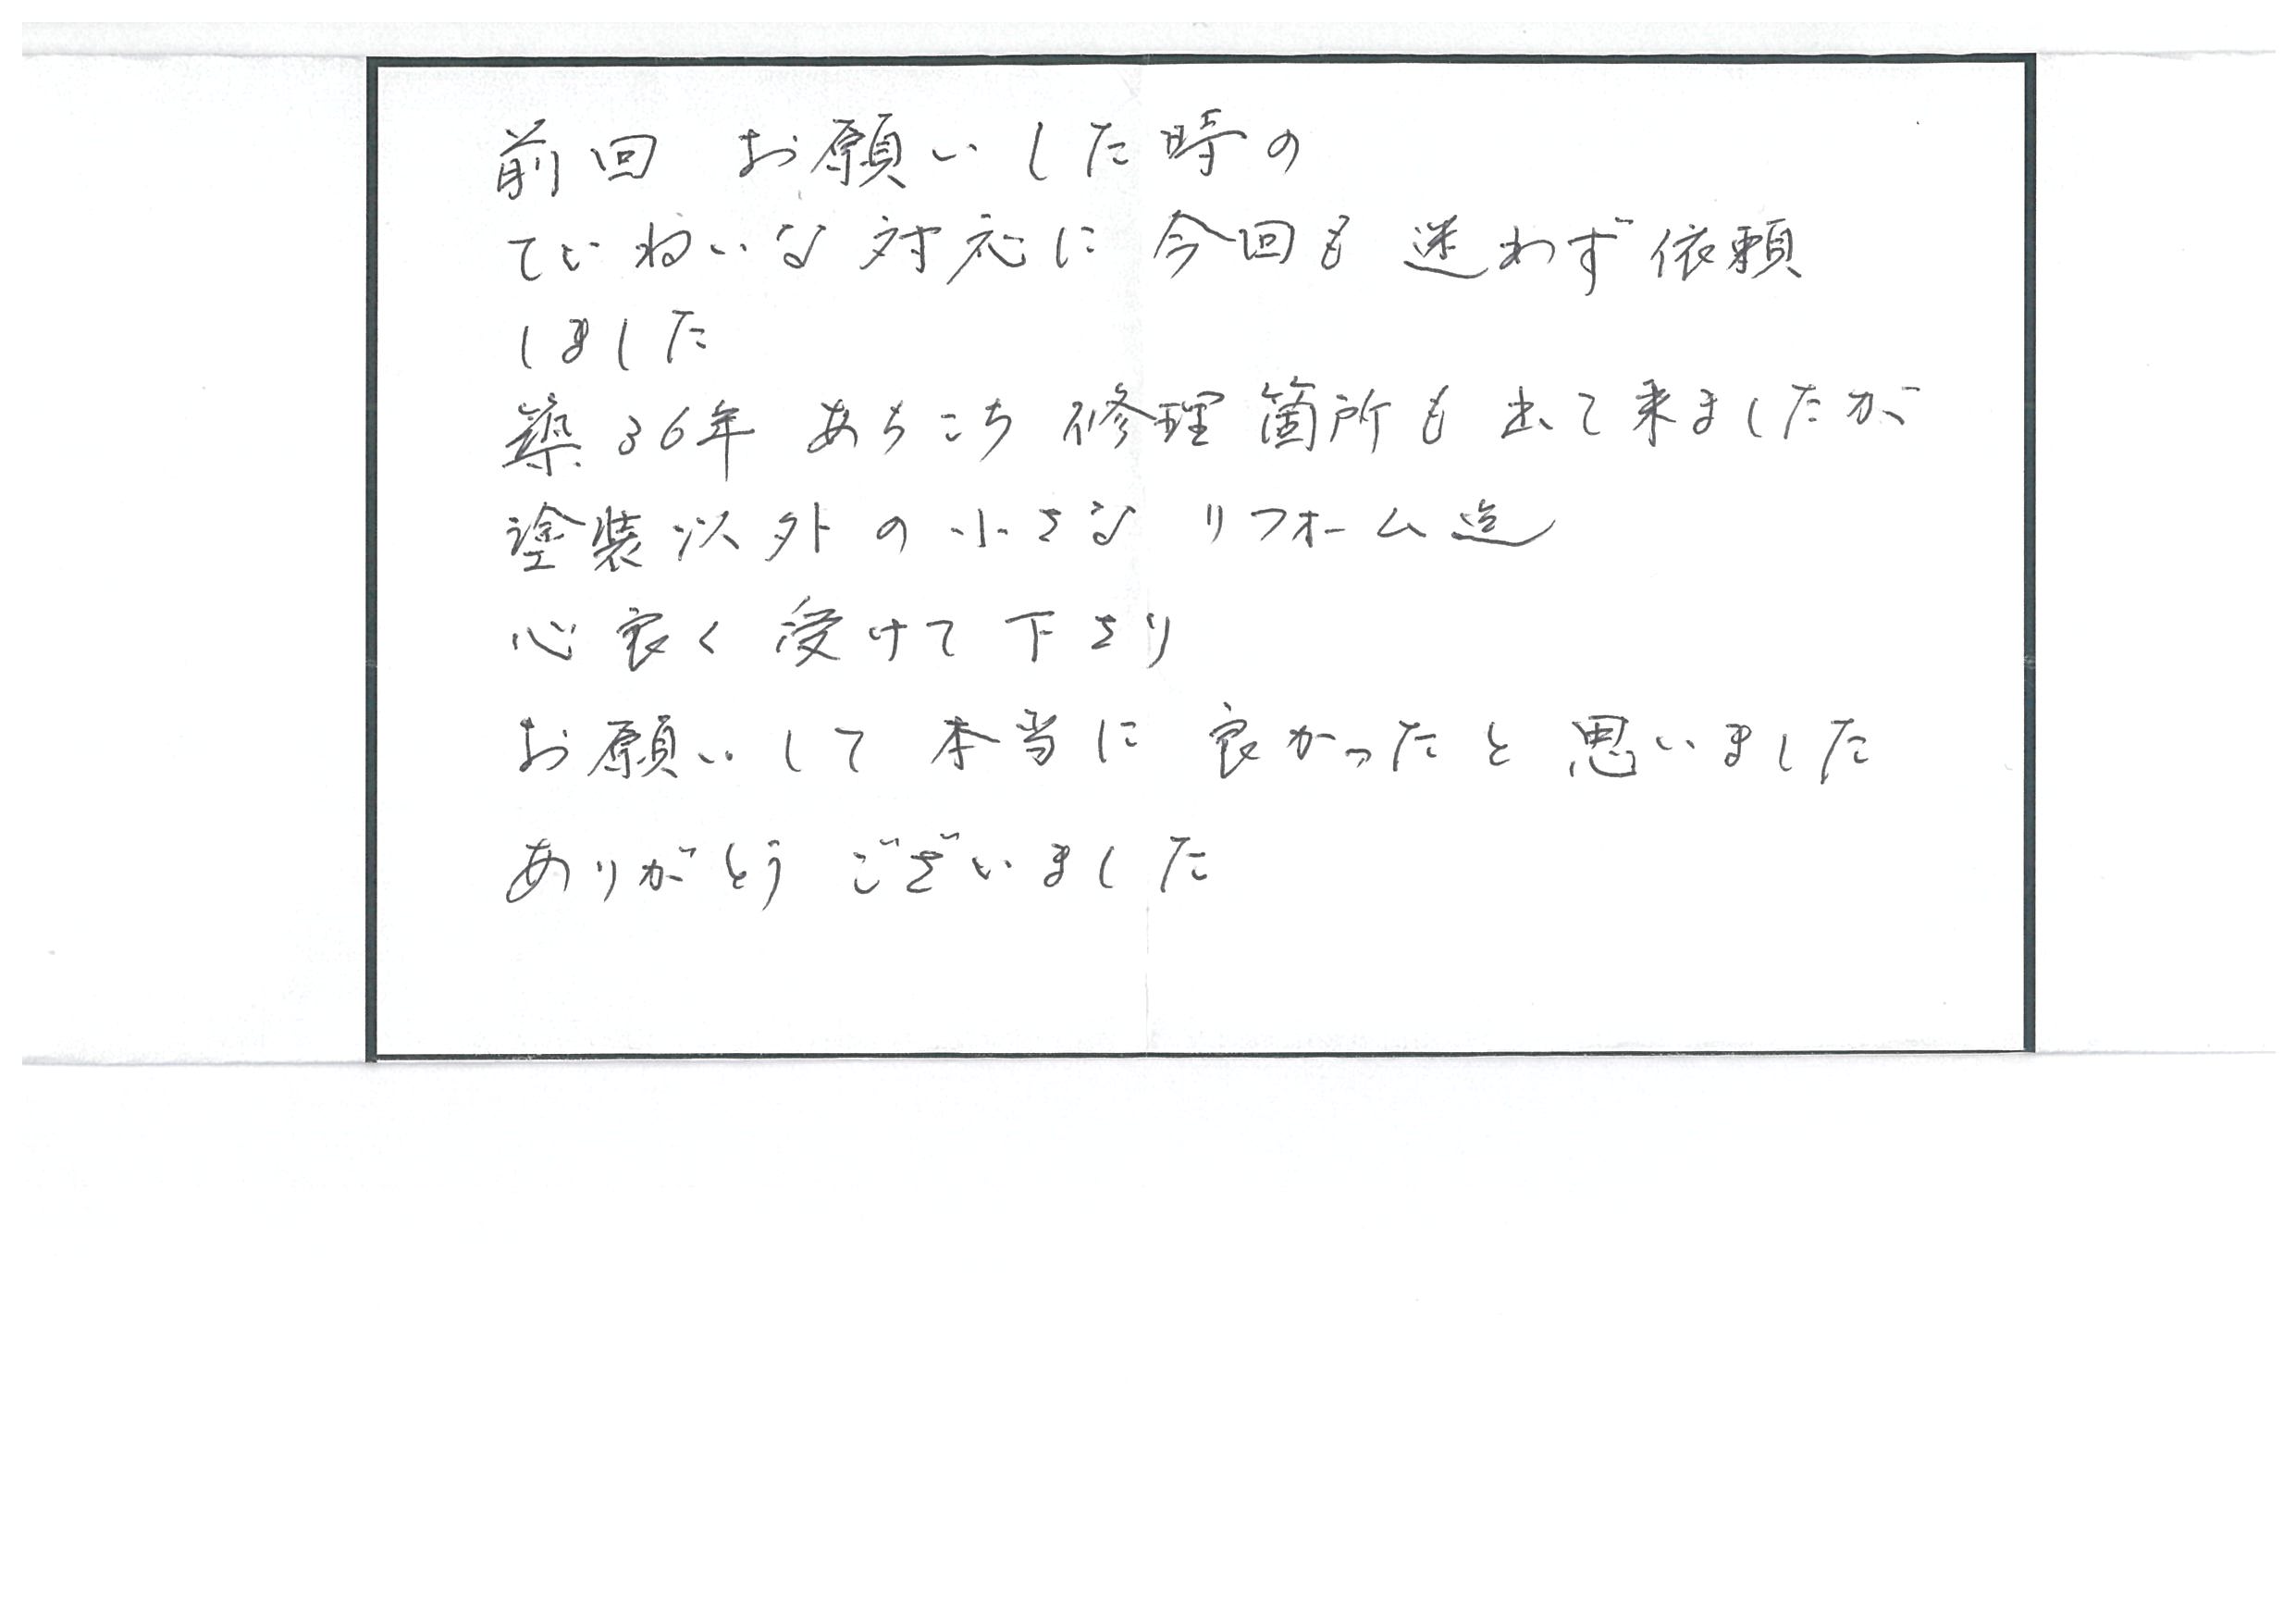 前回 お願いした時の
ていねいな対応に 今回も 迷わず依頼
しました
築36年 あちこち 修理箇所も 出て来ましたが
塗装以外の小さな リフォーム迄
心良く 受けて下さり
お願いして 本当に 良かったと 思いました
ありがとう ございました